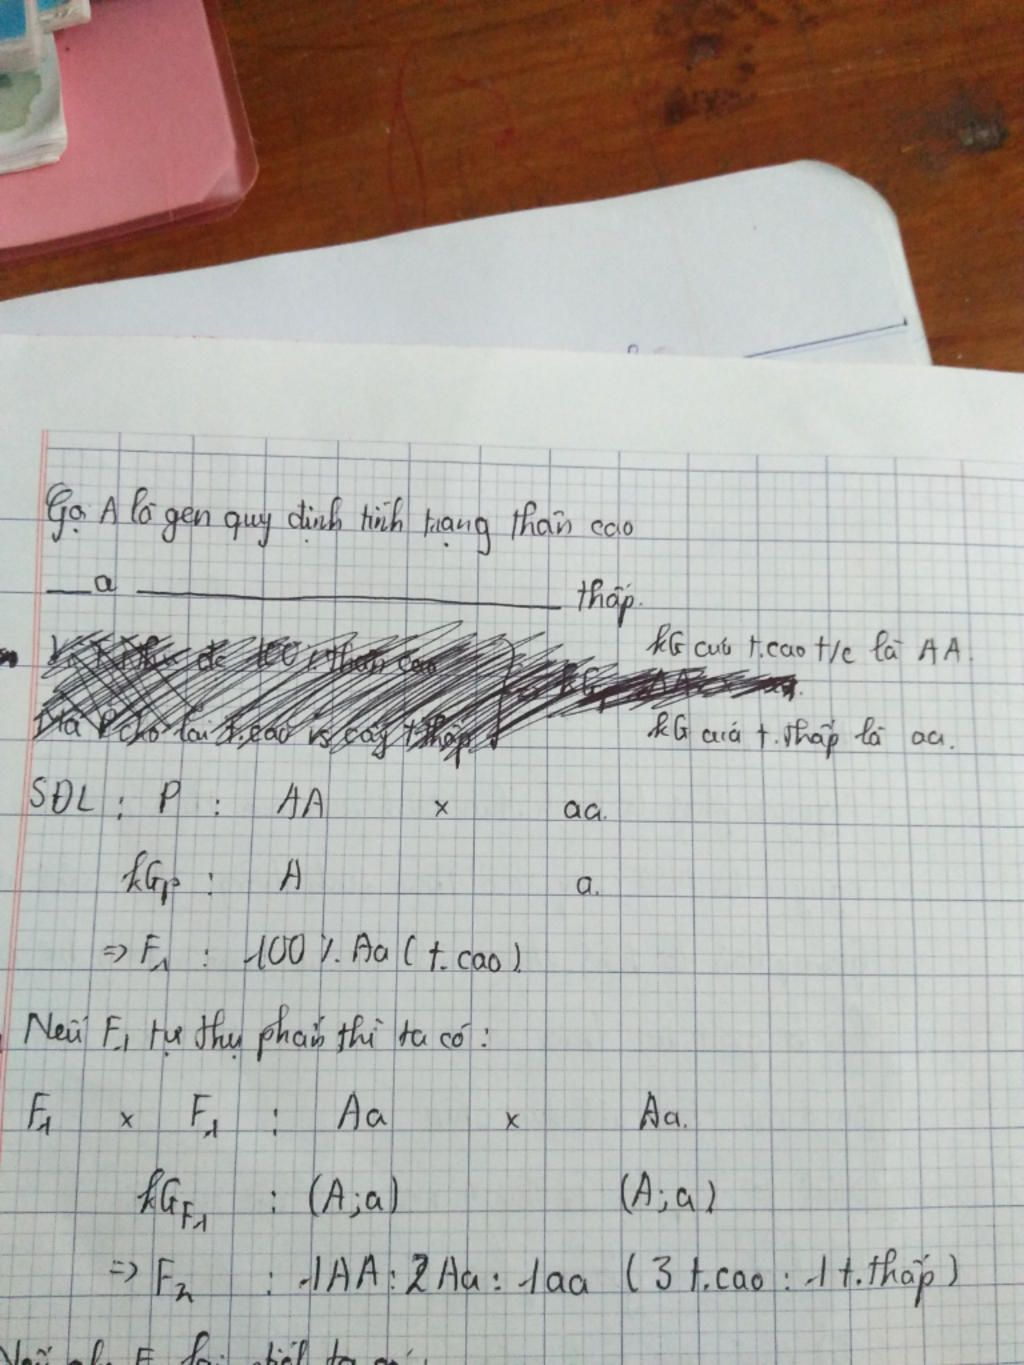 Gọi A là gen quy định tính trạng thân cao
__a ______________ thấp.
KG của t.cao t/c là AA.
KG của t.thấp là aa.
SĐL : P : AA x aa.
KGp : A a.
=> F1 : 100% Aa (t.cao)
Nếu F1 tự thụ phấn thì ta có :
F1 x F1 : Aa x Aa.
KGF1 : (A;a) (A;a)
=> F2 : 1AA : 2Aa : 1aa (3 t.cao : 1 t.thấp)